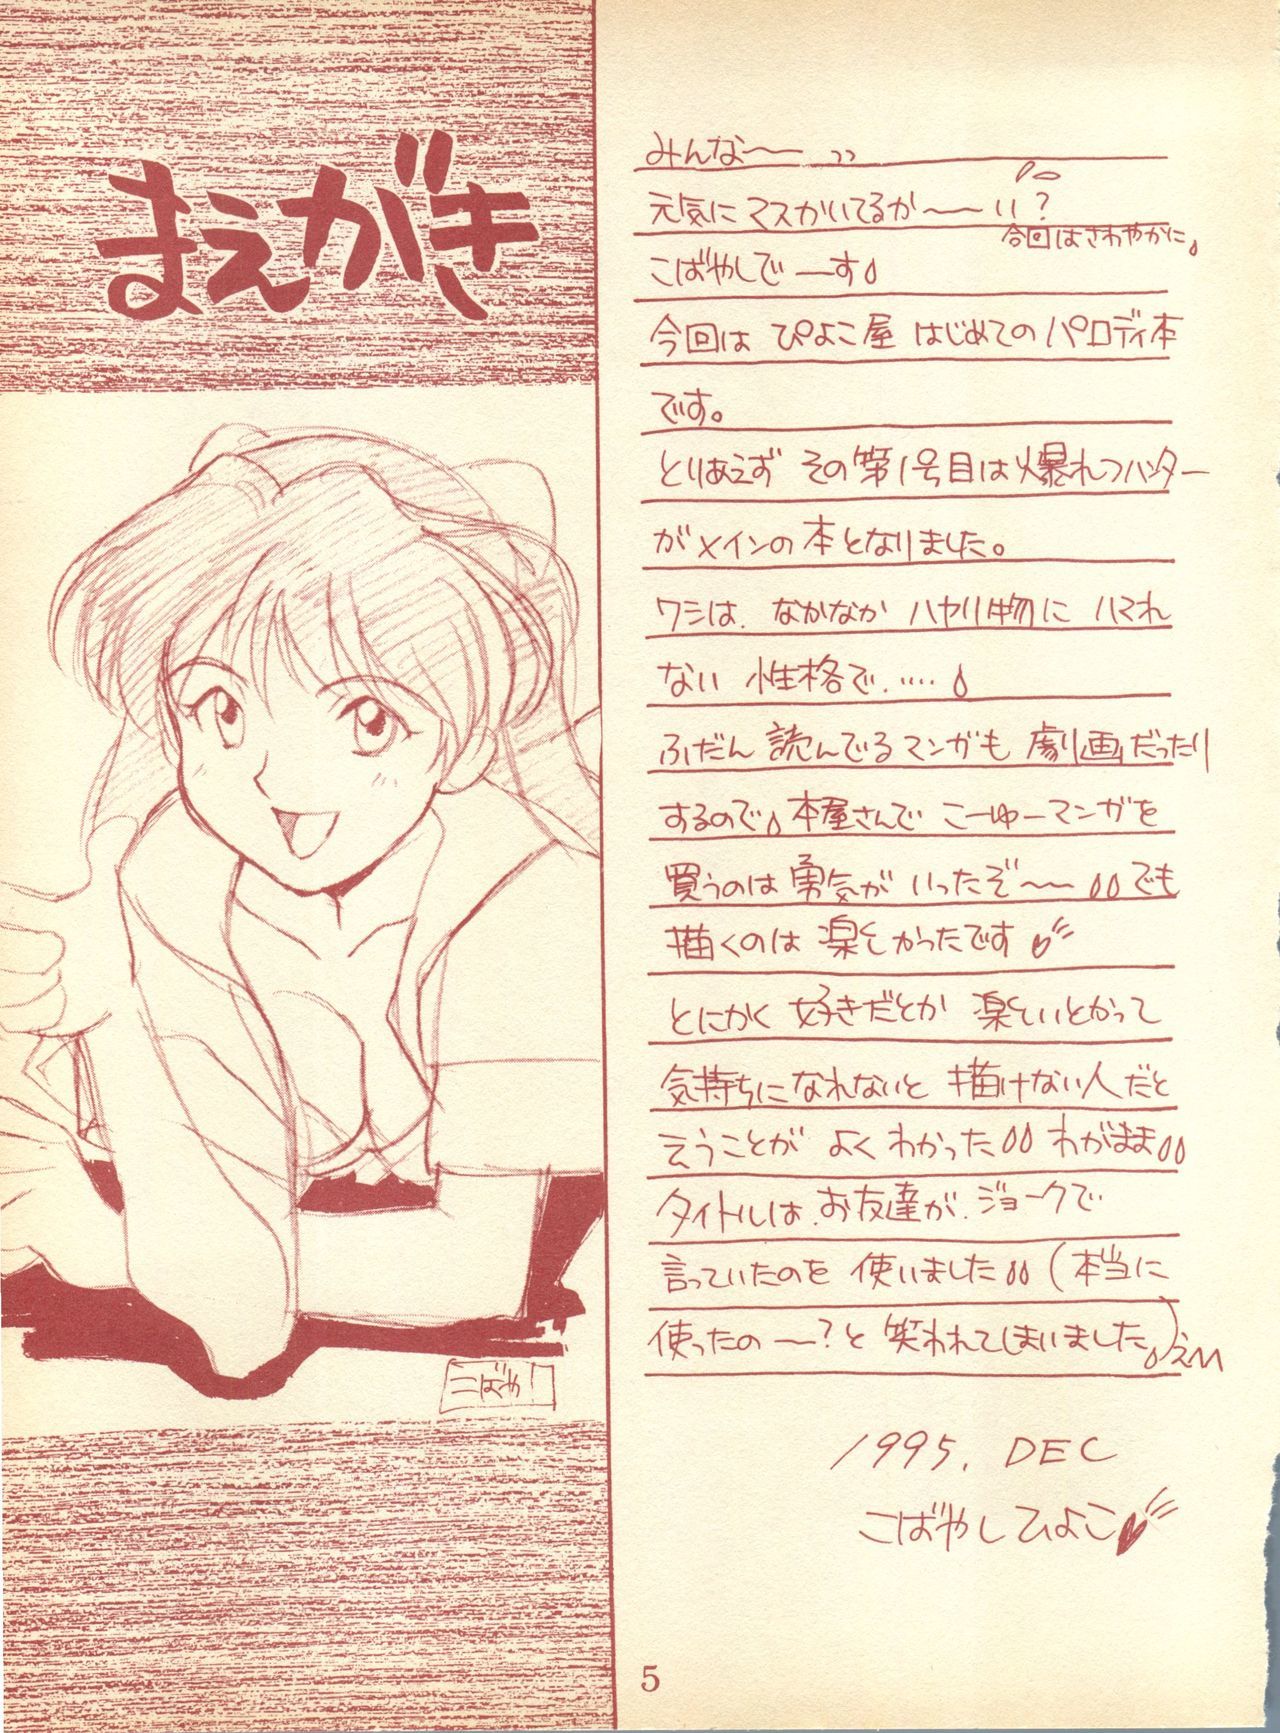 まえがき
みんな〜〜 ッッ
元気にマスかいてるか〜〜い?
今回はさわやかに。
こばやしでーす
今回は ぴよこ屋 はじめてのパロディ本
です。
とりあえず その第1号目は爆れつハンター
がメインの本となりました。
ワシは、なかなか ハヤリ物に ハマれ
ない 性格で.....
ふだん 読んでるマンガも 劇画だったり
するので 本屋さんで こーゆーマンガを
買うのは 勇気が いったぞ〜〜 でも
描くのは 楽しかったです
とにかく 好きだとか 楽しいとかって
気持ちになれないと 描けない人だと
ゆうことが よく わかった わがまま
タイトルは、お友達が、ジョークで
言っていたのを 使いました (本当に
使ったの〜? と 笑われてしまいました。)
こばや!
1995. DEC
こばやしひよこ
5